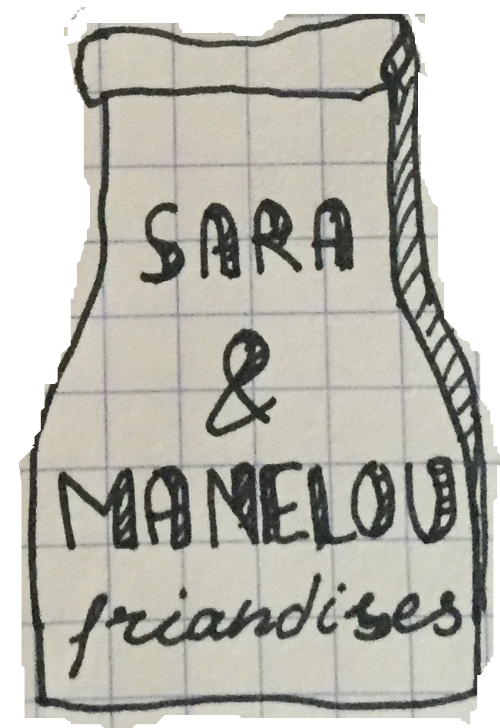 SARA
&
MANELOU
friandises